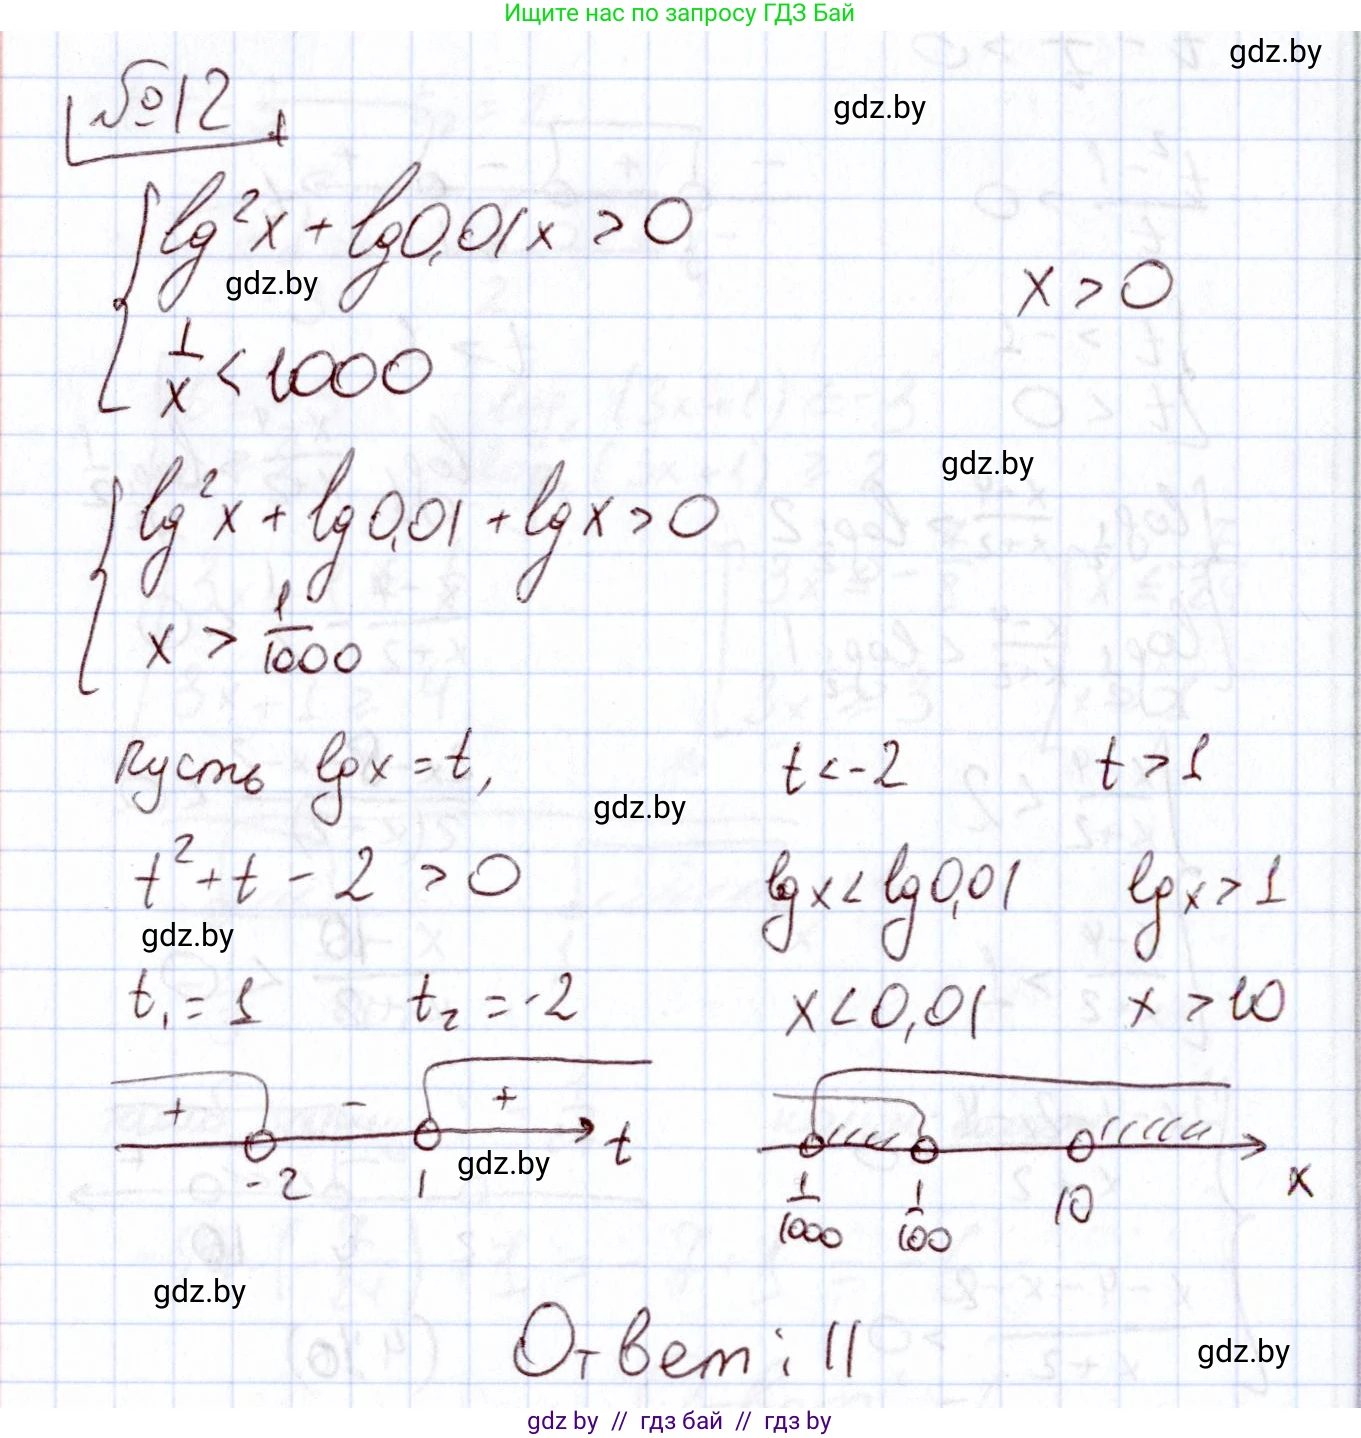 Ищите нас по запросу ГДЗ Бай
gdz.by
gdz.by
№12
lg²x + lg0,01x > 0
x > 0
gdz.by
1/x < 1000
gdz.by
lg²x + lg0,01 + lgx > 0
x > 1/1000
пусть lgx = t,
t < -2
t > 1
gdz.by
t² + t - 2 > 0
lgx < lg0,01
lgx > 1
gdz.by
t₁ = 1
t₂ = -2
x < 0,01
x > 10
+
-
+
t
-2
1
gdz.by
1/1000
1/100
10
x
gdz.by
Ответ: 11
gdz.by
gdz by // гдз бай // гдз by